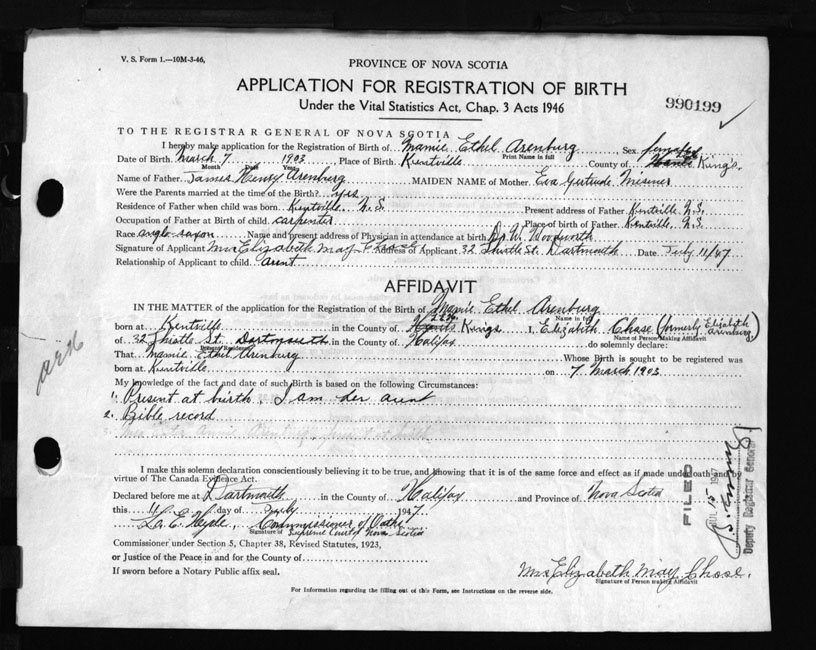 V. S. Form 1.—10M-3-46,
PROVINCE OF NOVA SCOTIA
APPLICATION FOR REGISTRATION OF BIRTH
Under the Vital Statistics Act, Chap. 3 Acts 1946
990199
TO THE REGISTRAR GENERAL OF NOVA SCOTIA
I hereby make application for the Registration of Birth of Mamie Ethel Arenburg Sex. female
Print Name in full
Date of Birth. March 7 1903 Place of Birth. Kentville County of Hants Kings
Month Date Year
Name of Father James Henry Arenburg MAIDEN NAME of Mother. Eva Gertrude Misner
Were the Parents married at the time of the Birth? yes
Residence of Father when child was born. Kentville N.S. Present address of Father Kentville N.S.
Occupation of Father at Birth of child. carpenter Place of birth of Father. Kentville, N.S.
Race anglo-saxon Name and present address of Physician in attendance at birth Dr W. Woodworth
Signature of Applicant Mrs Elizabeth May Chase Address of Applicant 32 Thistle St. Dartmouth Date July 11/47
Relationship of Applicant to child. aunt
AFFIDAVIT
IN THE MATTER of the application for the Registration of the Birth of Mamie Ethel Arenburg
Name in full
born at Kentville in the County of Hants Kings I, Elizabeth Chase (formerly Elizabeth Arenburg)
Name of Person Making Affidavit
of 32 Thistle St. Dartmouth in the County of Halifax do solemnly declare:
That Mamie Ethel Arenburg Whose Birth is sought to be registered was
born at Kentville on 7 March 1903
My knowledge of the fact and date of such Birth is based on the following Circumstances:
1. Present at birth. I am her aunt
2. Bible record
I make this solemn declaration conscientiously believing it to be true, and knowing that it is of the same force and effect as if made under oath and by
virtue of The Canada Evidence Act.
Declared before me at Dartmouth in the County of Halifax and Province of Nova Scotia
this 11 day of July 1947.
Commissioner of Oaths
Signature of Supreme Court of Nova Scotia
Commissioner under Section 5, Chapter 38, Revised Statutes, 1923,
or Justice of the Peace in and for the County of
If sworn before a Notary Public affix seal.
Mrs Elizabeth May Chase.
Signature of Person making Affidavit
For Information regarding the filling out of this Form, see Instructions on the reverse side.
FILED
15 1947
Deputy Registrar General